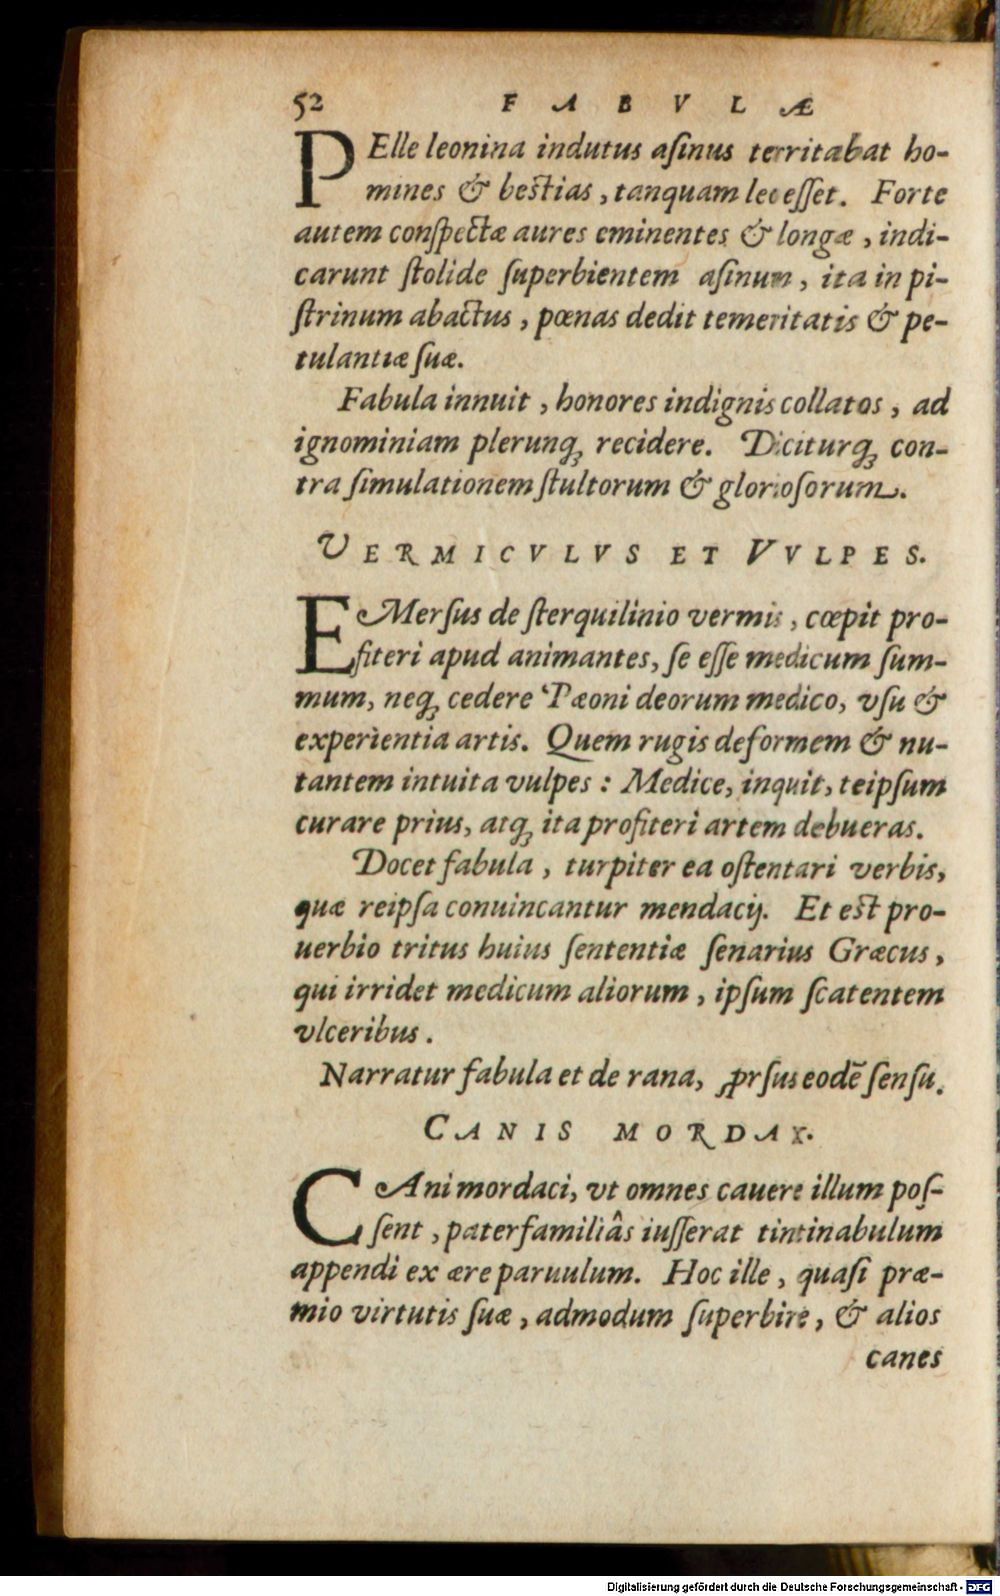 52 FABVLÆ
PElle leonina indutus aſinus territabat ho-
mines & beſtias, tanquam leo eſſet. Forte
autem conſpectæ aures eminentes & longæ, indi-
carunt ſtolide ſuperbientem aſinum, ita in pi-
ſtrinum abactus, pœnas dedit temeritatis & pe-
tulantiæ ſuæ.
Fabula innuit, honores indignis collatos, ad
ignominiam plerunqꝫ recidere. Diciturqꝫ con-
tra ſimulationem ſtultorum & glorioſorum.
VERMICVLVS ET VVLPES.
EMerſus de ſterquilinio vermis, cœpit pro-
fiteri apud animantes, ſe eſſe medicum ſum-
mum, neqꝫ cedere Pæoni deorum medico, vſu &
experientia artis. Quem rugis deformem & nu-
tantem intuita vulpes: Medice, inquit, teipſum
curare prius, atqꝫ ita profiteri artem debueras.
Docet fabula, turpiter ea oſtentari verbis,
quæ reipſa conuincantur mendacij. Et eſt pro-
uerbio tritus huius ſententiæ ſenarius Græcus,
qui irridet medicum aliorum, ipſum ſcatentem
vlceribus.
Narratur fabula et de rana, ꝓrſus eodẽ ſenſu.
CANIS MORDAX.
CAni mordaci, vt omnes cauere illum poſ-
ſent, paterfamiliâs iuſſerat tintinabulum
appendi ex ære paruulum. Hoc ille, quaſi præ-
mio virtutis ſuæ, admodum ſuperbire, & alios
canes
Digitalisierung gefördert durch die Deutsche Forschungsgemeinschaft - DFG